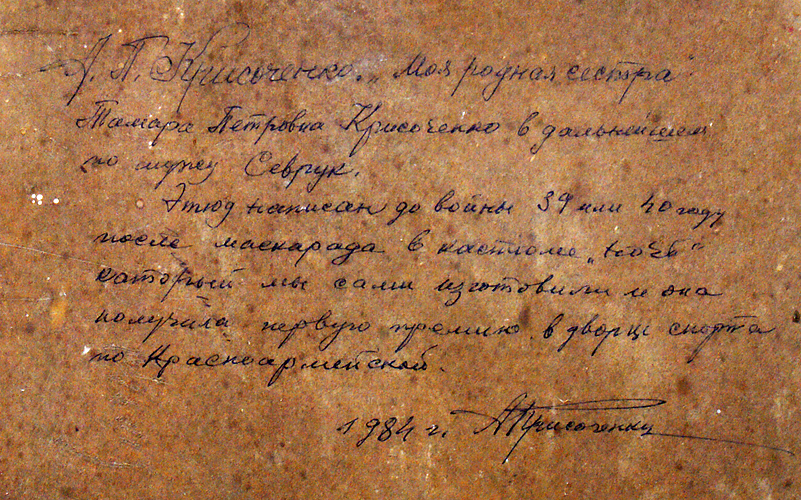 А. П. Крисоченко. „Моя родная сестра"
Тамара Петровна Крисоченко в дальнейшем
по мужу Севрук.
Этюд написан до войны 39 или 40 году
после маскарада в костюме „ночь"
каторый мы сами изготовили и она
получила первую премию в дворце спорта
по Красноармейской.
1984 г. АКрисоченко